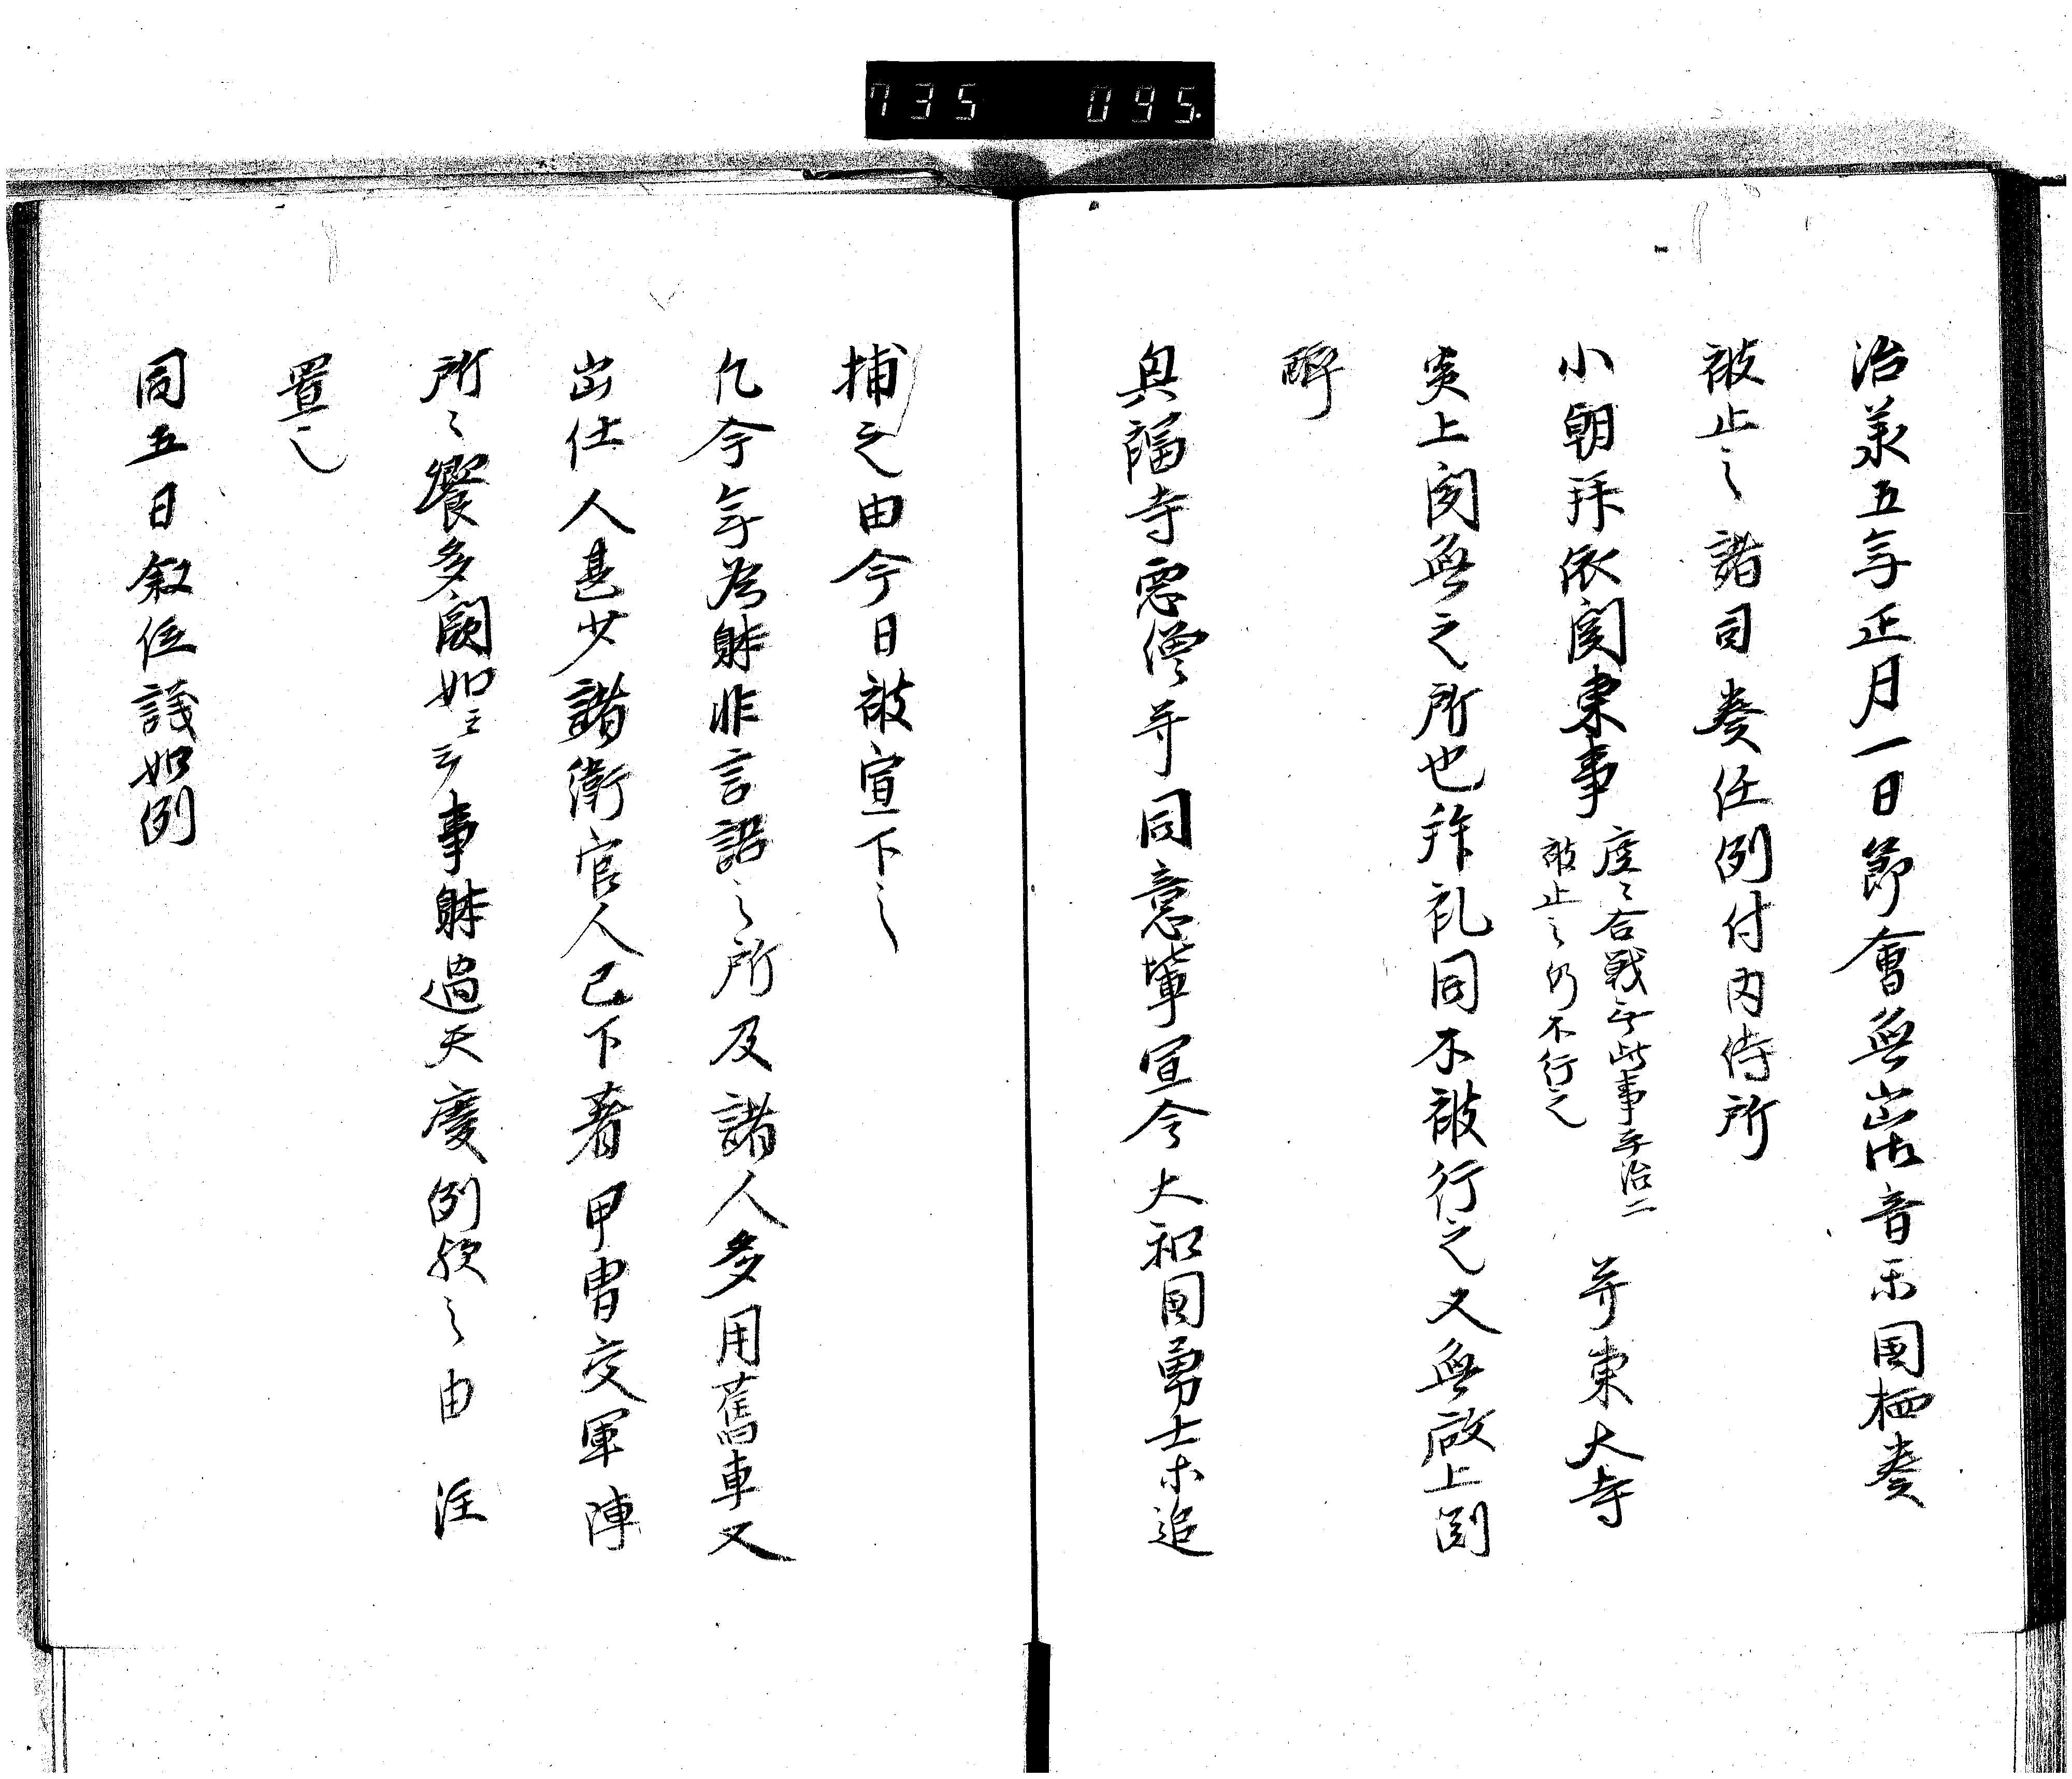 735 095.
治承五年正月一日節會無出御音樂国栖奏
被止之諸司奏任例付内侍所
小朝拝依関東事度々合戦無此事平治二
被止之仍不行之并東大寺
炎上関無之所也拝礼同不被行之又無殿上渕
酔
興福寺悪僧并同意輩宣令大和国勇士等追
捕之由今日被宣下之
凡今年為躰非言詔之所及諸人多用舊車又
出仕人甚少諸衛官人已下著甲冑交軍陣
所々饗多闕如云々事躰過天慶例歟之由注
置之
同五日叙位議如例